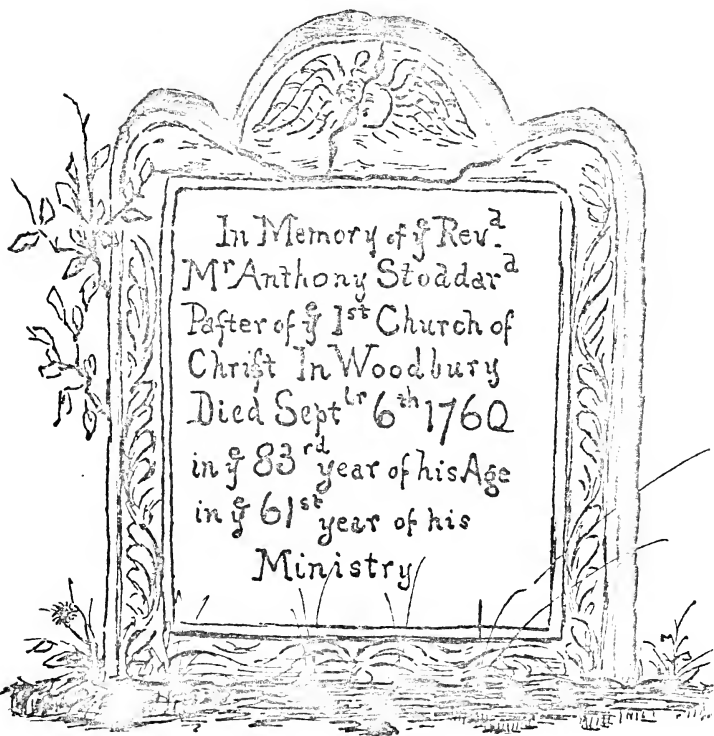 In Memory of yͤ Revᵈ.
Mʳ Anthony Stoddarᵈ
Paſter of yͤ 1ˢᵗ Church of
Chriſt In Woodbury
Died Septᵇʳ 6ᵗʰ 1760
in yͤ 83ʳᵈ year of his Age
in yͤ 61ˢᵗ year of his
Ministry